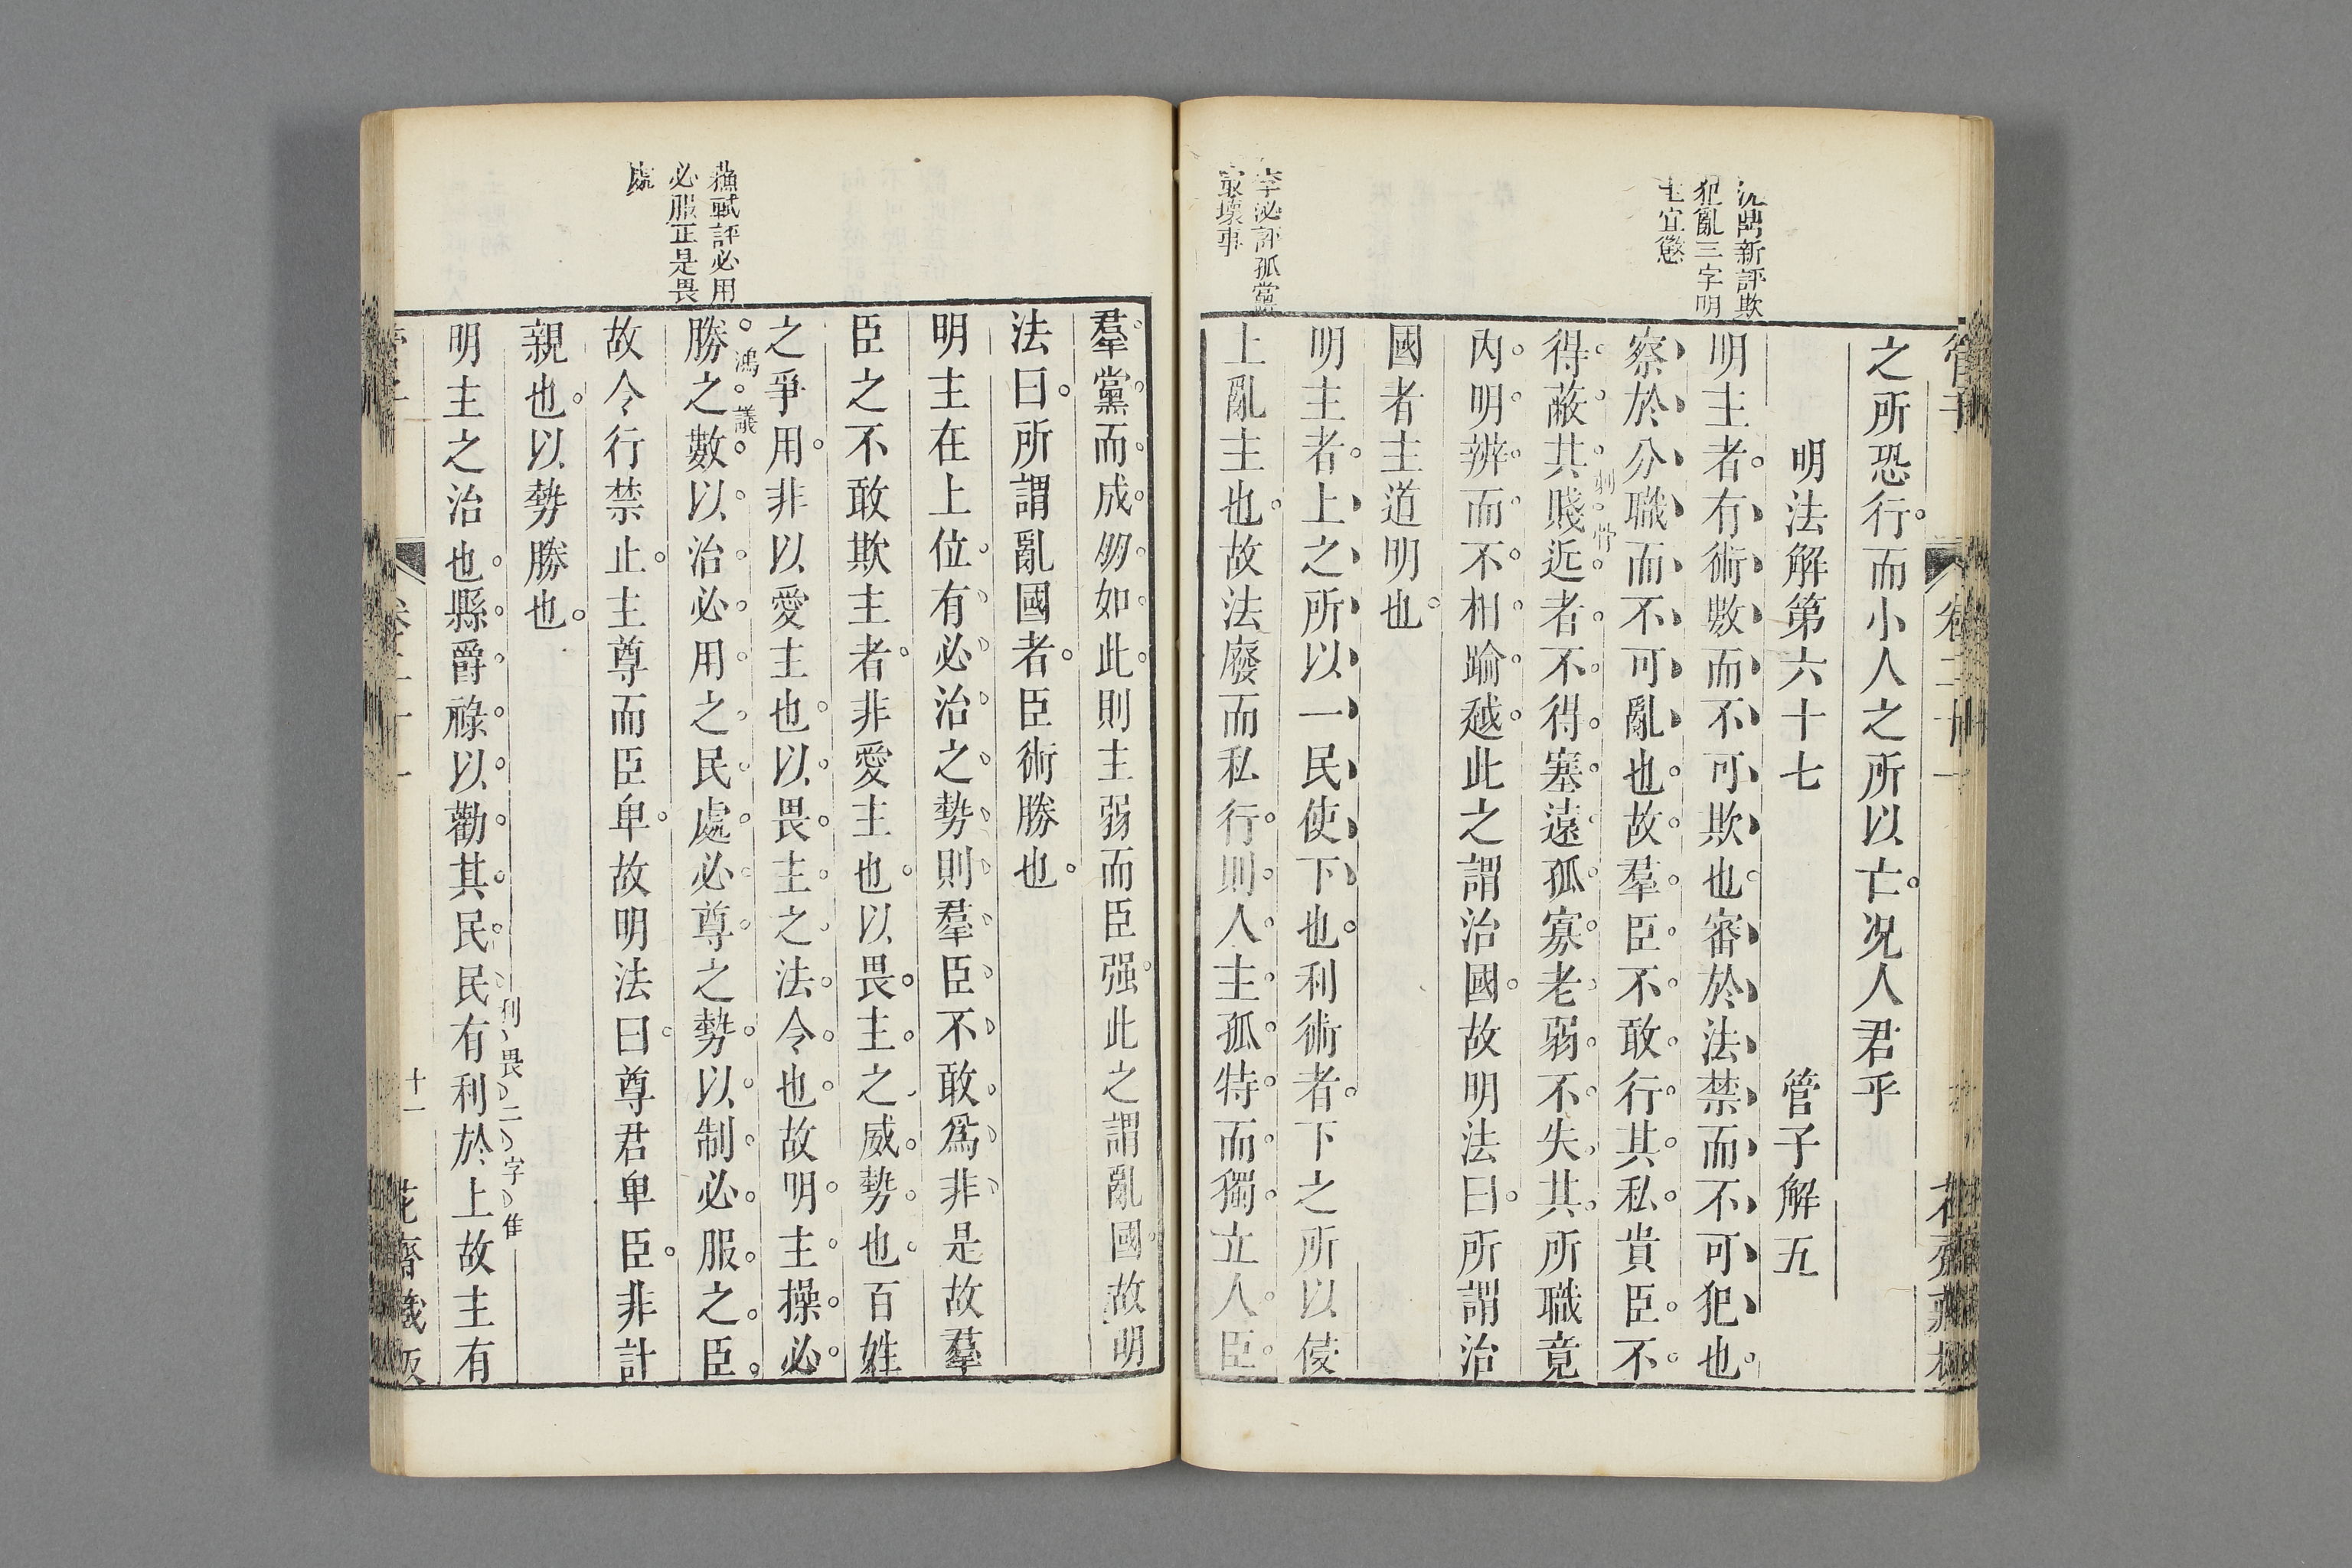 沈鼎新評欺
犯亂三字明
主宜懲
李泌評孤黨
最壞事
管子
卷二十一
之所恐行而小人之所以亡况人君乎
明法解第六十七 管子解五
明主者有術數而不可欺也審於法禁而不可犯也
察於分職而不可亂也故羣臣不敢行其私貴臣不
得蔽其賤近者不得塞遠孤寡老弱不失其所職竟
刺骨
内明辨而不相踰越此之謂治國故明法曰所謂治
國者主道明也
明主者上之所以一民使下也利術者下之所以侵
上亂主也故法廢而私行則人主孤特而獨立人臣
蘇軾評必用
必服正是畏
處
羣黨而成朋如此則主弱而臣强此之謂亂國故明
法曰所謂亂國者臣術勝也
明主在上位有必治之勢則羣臣不敢爲非是故羣
臣之不敢欺主者非愛主也以畏主之威勢也百姓
之爭用非以愛主也以畏主之法令也故明主操必
鴻議
勝之數以治必用之民處必尊之勢以制必服之臣
故令行禁止主尊而臣卑故明法曰尊君卑臣非計
親也以勢勝也
利畏二字佳
明主之治也縣爵祿以勸其民民有利於上故主有
十一
花齋藏板